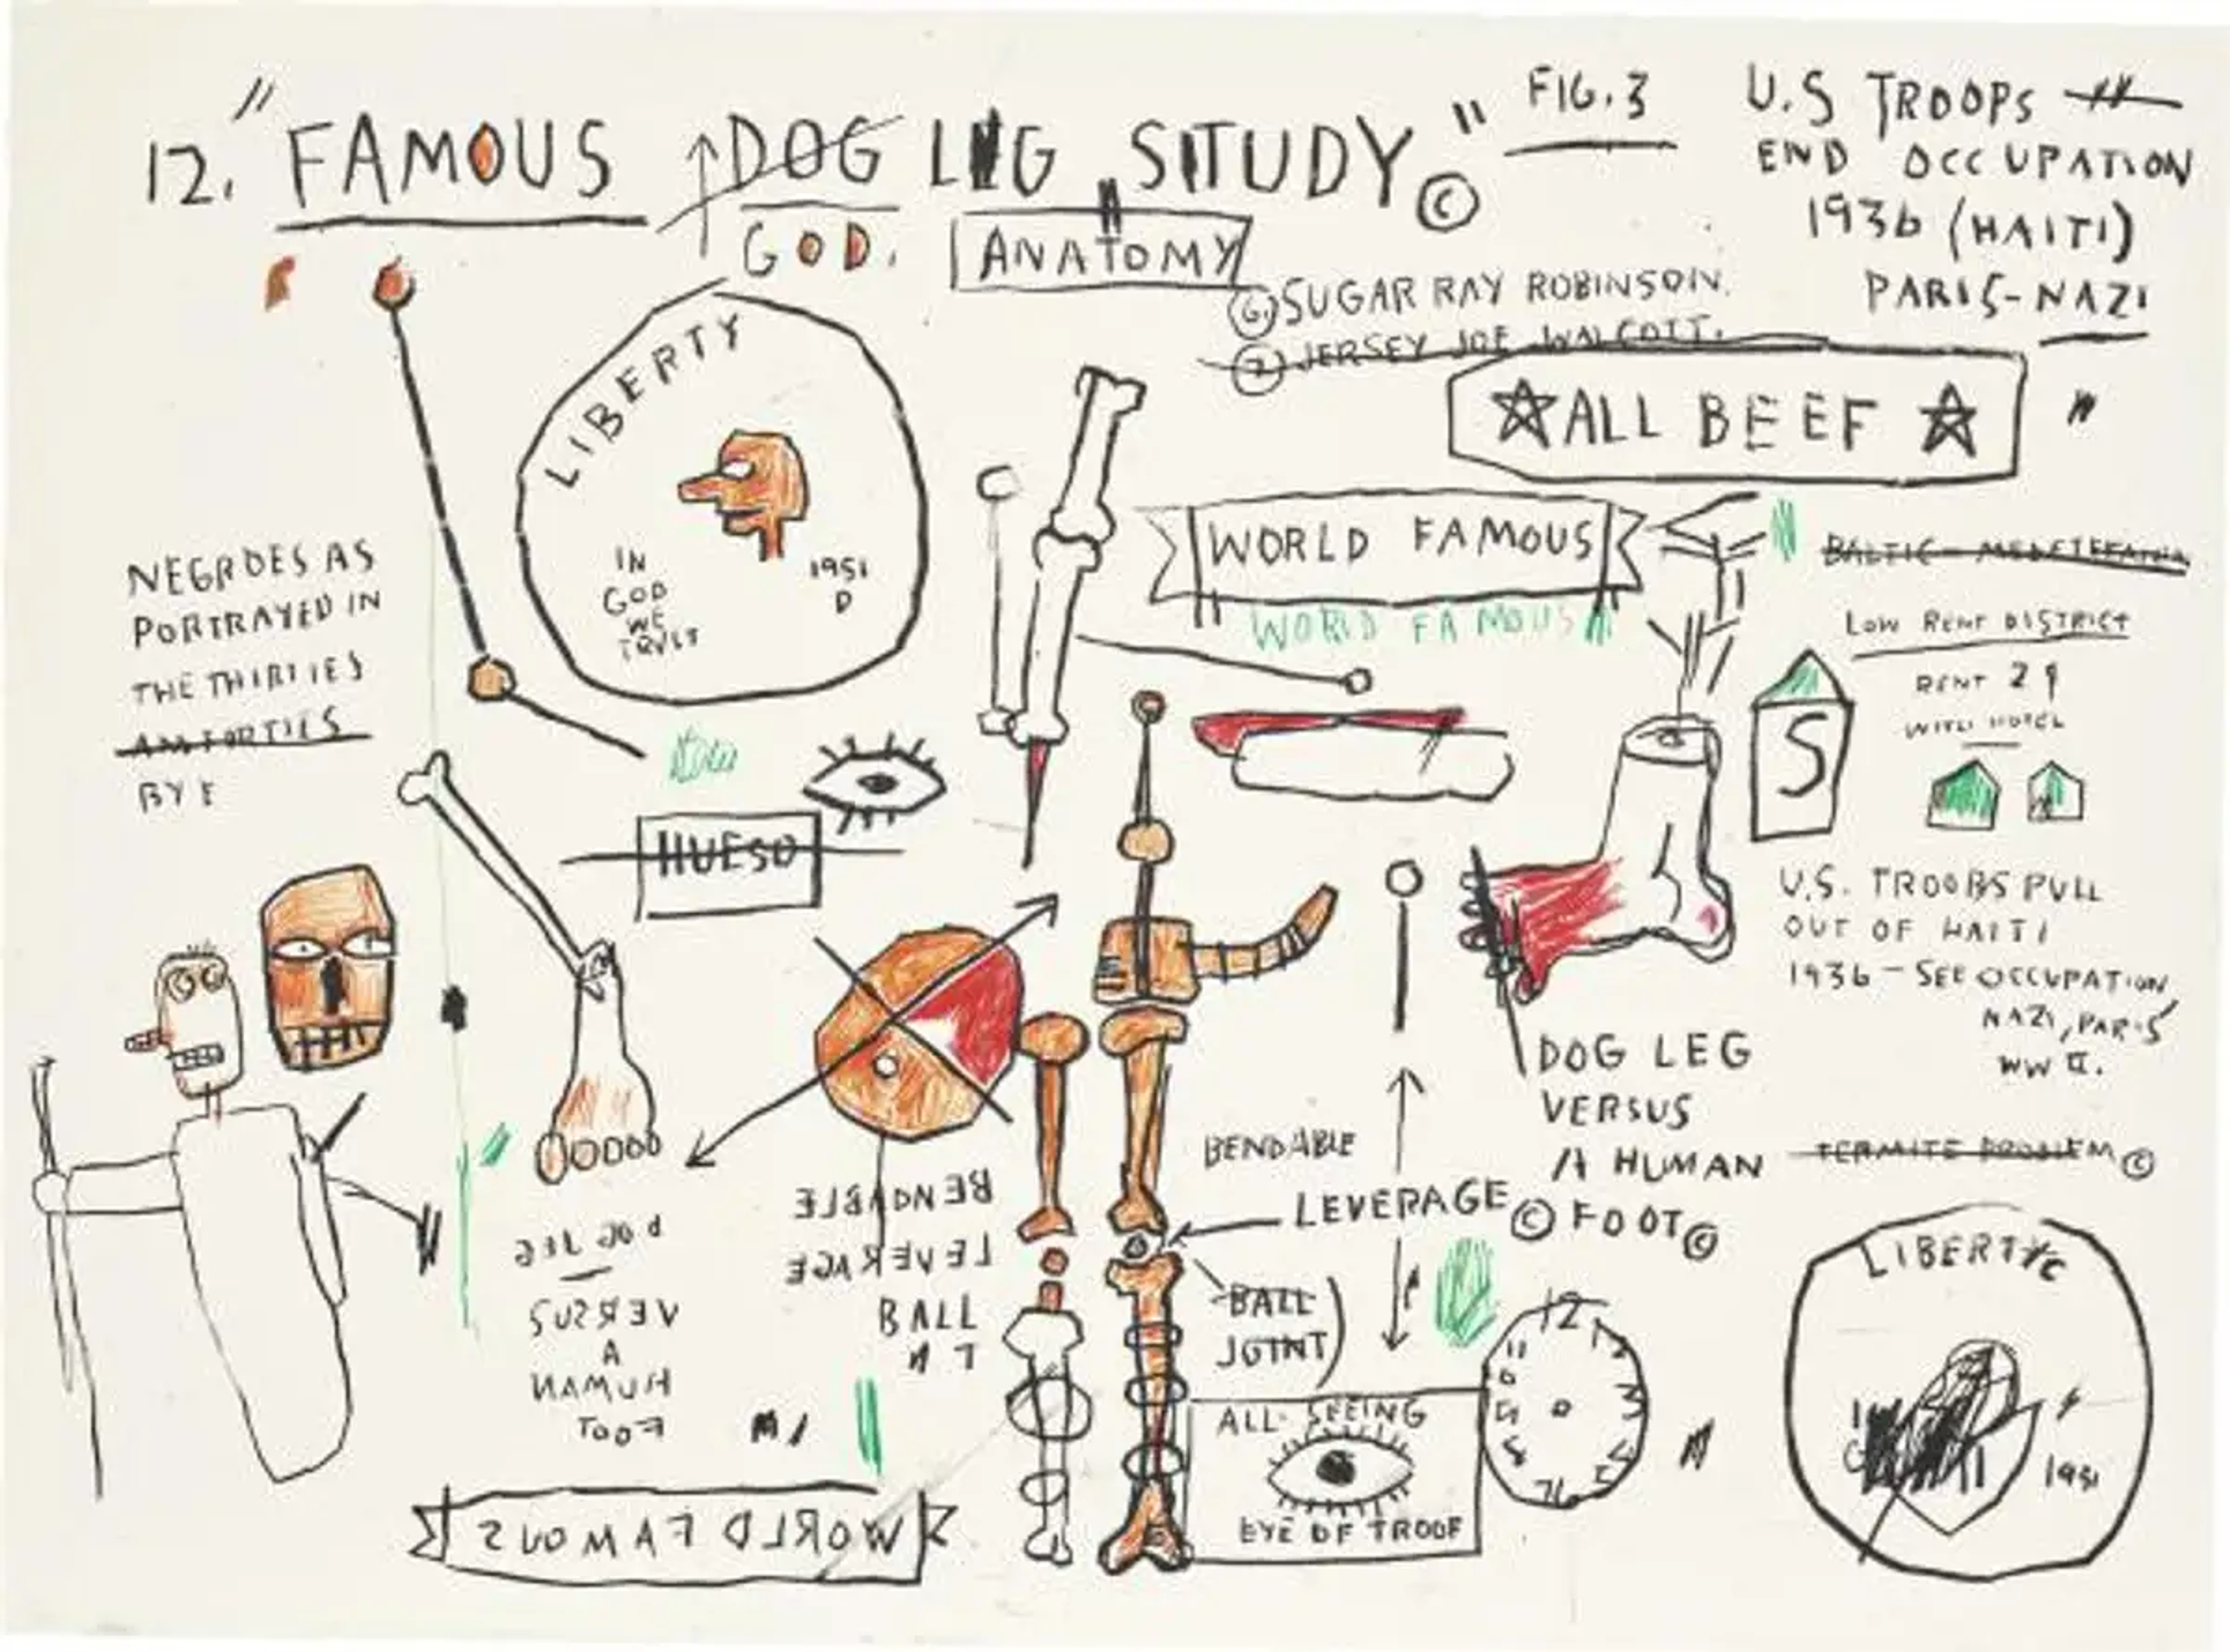 12. "FAMOUS DOG LEG STUDY" ©
GOD.
ANATOMY
FIG. 3
U.S TROOPS
END OCCUPATION
1936 (HAITI)
PARIS-NAZI
6. SUGAR RAY ROBINSON.
7 JERSEY JOE WALCOTT.
☆ALL BEEF☆
LIBERTY
IN
GOD
WE
TRUST
1951
D
WORLD FAMOUS
WORLD FAMOUS
LOW RENT DISTRICT
RENT 2
WITH HOTEL
S
NEGROES AS
PORTRAYED IN
THE THIRTIES
HUESO
U.S. TROOPS PULL
OUT OF HAITI
1936 - SEE OCCUPATION
NAZI, PARIS
WW II.
DOG LEG
VERSUS
A HUMAN
FOOT©
TERMITE PROBLEM ©
BENDABLE
LEVERAGE ©
BALL
JOINT)
BENDABLE
LEVERAGE
BALL
DOG LEG
VERSUS
A
HUMAN
FOOT
ALL SEEING
EYE OF TROOF
12
11
LIBERTY
1951
WORLD FAMOUS